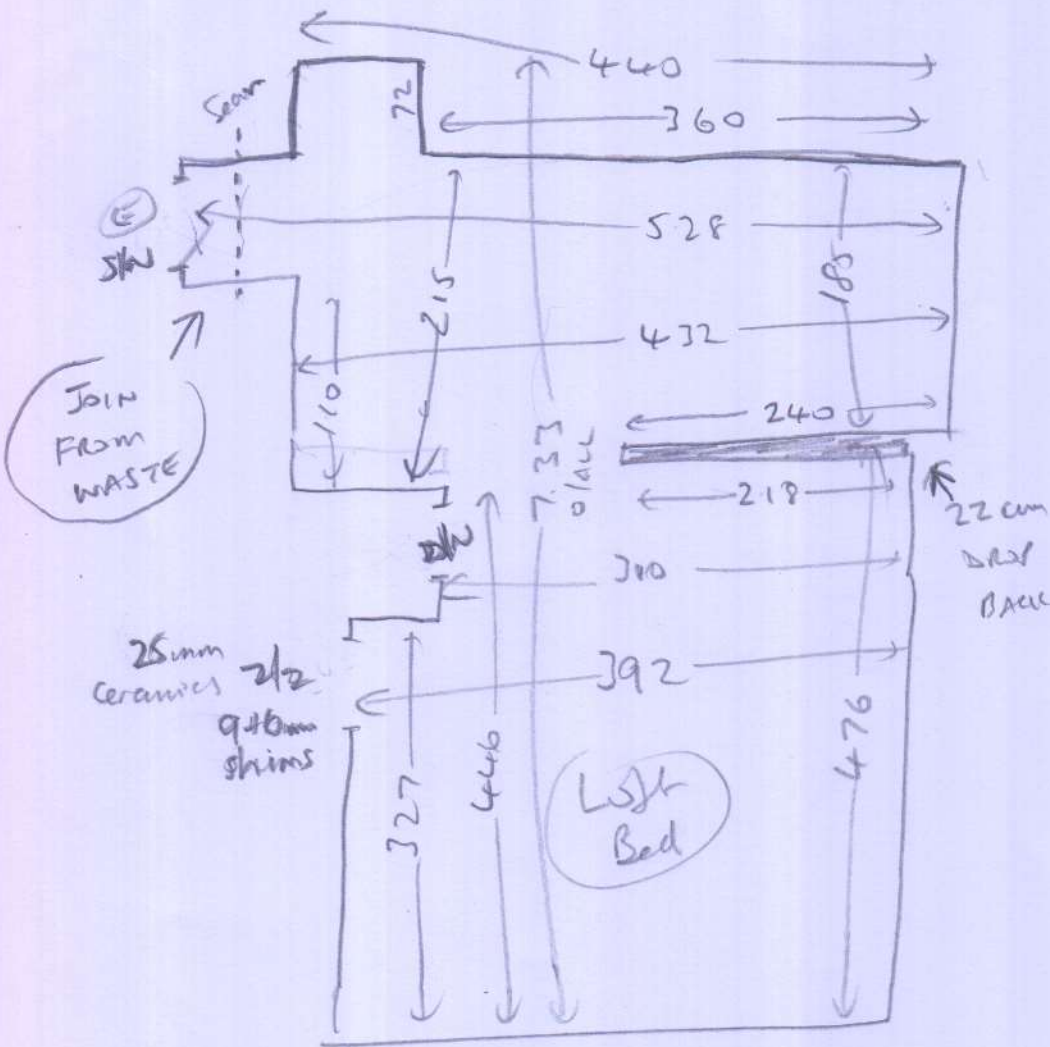 440
Seam
72
360
E
S/W
528
215
185
432
JOIN
FROM
WASTE
110
240
7.33
o/all
218
22 cm
DROP
BACK
D/W
310
25mm
ceramics 2/2
9+6mm
shims
392
327
446
476
Loft
Bed